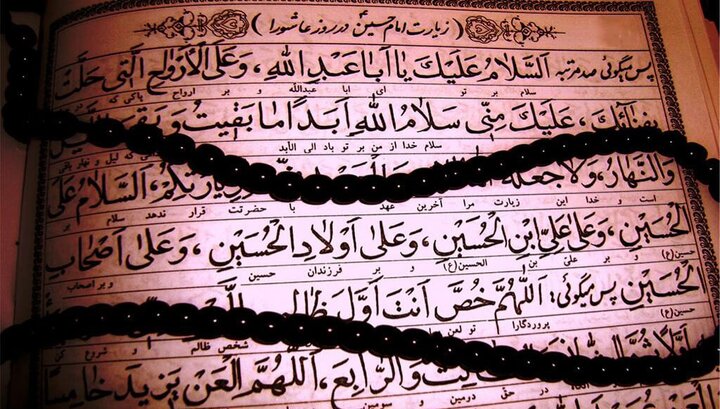 زیارت امام حسین در روز عاشورا
پس میگوئی صد مرتبه اَلسَّلامُ عَلَیْکَ یا اَبا عَبْدِاللهِ، وَعَلَی الْاَرْواحِ الَّتی حَلَّتْ
سلام بر تو ای ابا عبدالله و بر ارواح پاکی که در
بِفِنائِکَ، عَلَیْکَ مِنّی سَلامُ اللهِ اَبَداً ما بَقیتُ وَ بَقِیَ
سلام خدا از من بر تو باد الی الابد
وَالنَّهارُ، وَلا جَعَلَهُ
است و خدا این زیارت مرا آخرین عهد با حضرتت قرار ندهد سلام بر
زِیارَتِکُمْ، اَلسَّلامُ عَلَی
الْحُسَیْنِ، وَعَلی عَلِیِّ ابْنِ الْحُسَیْنِ، وَعَلی اَوْلادِ الْحُسَیْنِ، وَعَلی اَصْحابِ
حسین(ع) و بر علی بن الحسین(ع) و بر فرزندان حسین و بر اصحاب
الْحُسَیْنِ پس میگوئی: اَللّهُمَّ خُصَّ اَنْتَ اَوَّلَ
حسین(ع) پروردگارا تو
شخص ظالم و شروع
وَالرّابِعَ، اَللّهُمَّ الْعَنْ یَزیدَ خامِساً
در حق دومین و سومین